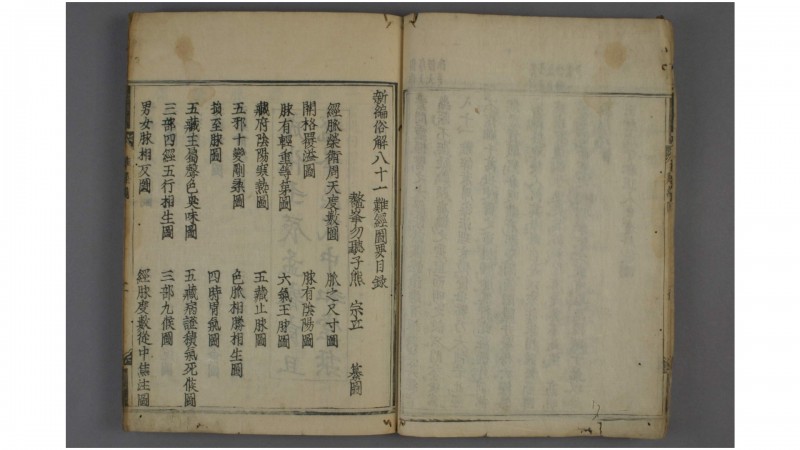 新編俗解八十一難經圖要目錄
鰲峯勿聽子熊 宗立 纂圖
經脈榮衛周天度數圖 脈之尺寸圖
關格覆溢圖 脉有陰陽圖
脉有輕重等第圖 六氣王脉圖
藏府陰陽寒熱圖 五藏止脉圖
五邪十變剛柔圖 色脈相勝相生圖
損至脉圖 四時胃氣圖
五藏主為聲色臭味圖 五藏病證積氣死候圖
三部四經五行相生圖 三部九候圖
男女脉相反圖 經脉度數從中焦注圖